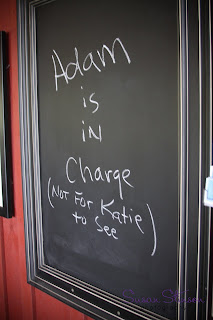 Adam
is
in
Charge
(Not For Katie
to See)
Susan Stripling